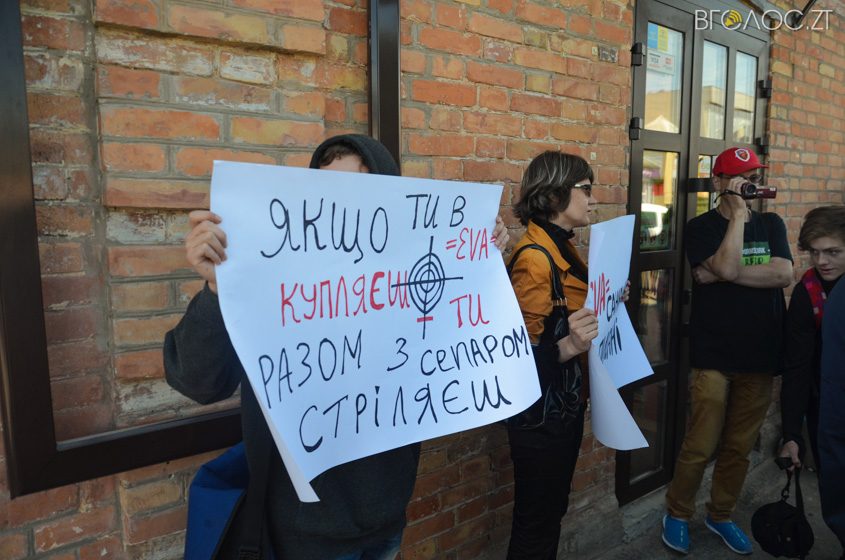 ВГОЛОС.ZT
ЯКЩО ТИ В
=EVA=
КУПЛЯЄШ
- ТИ
РАЗОМ З СЕПАРОМ
СТРІЛЯЄШ